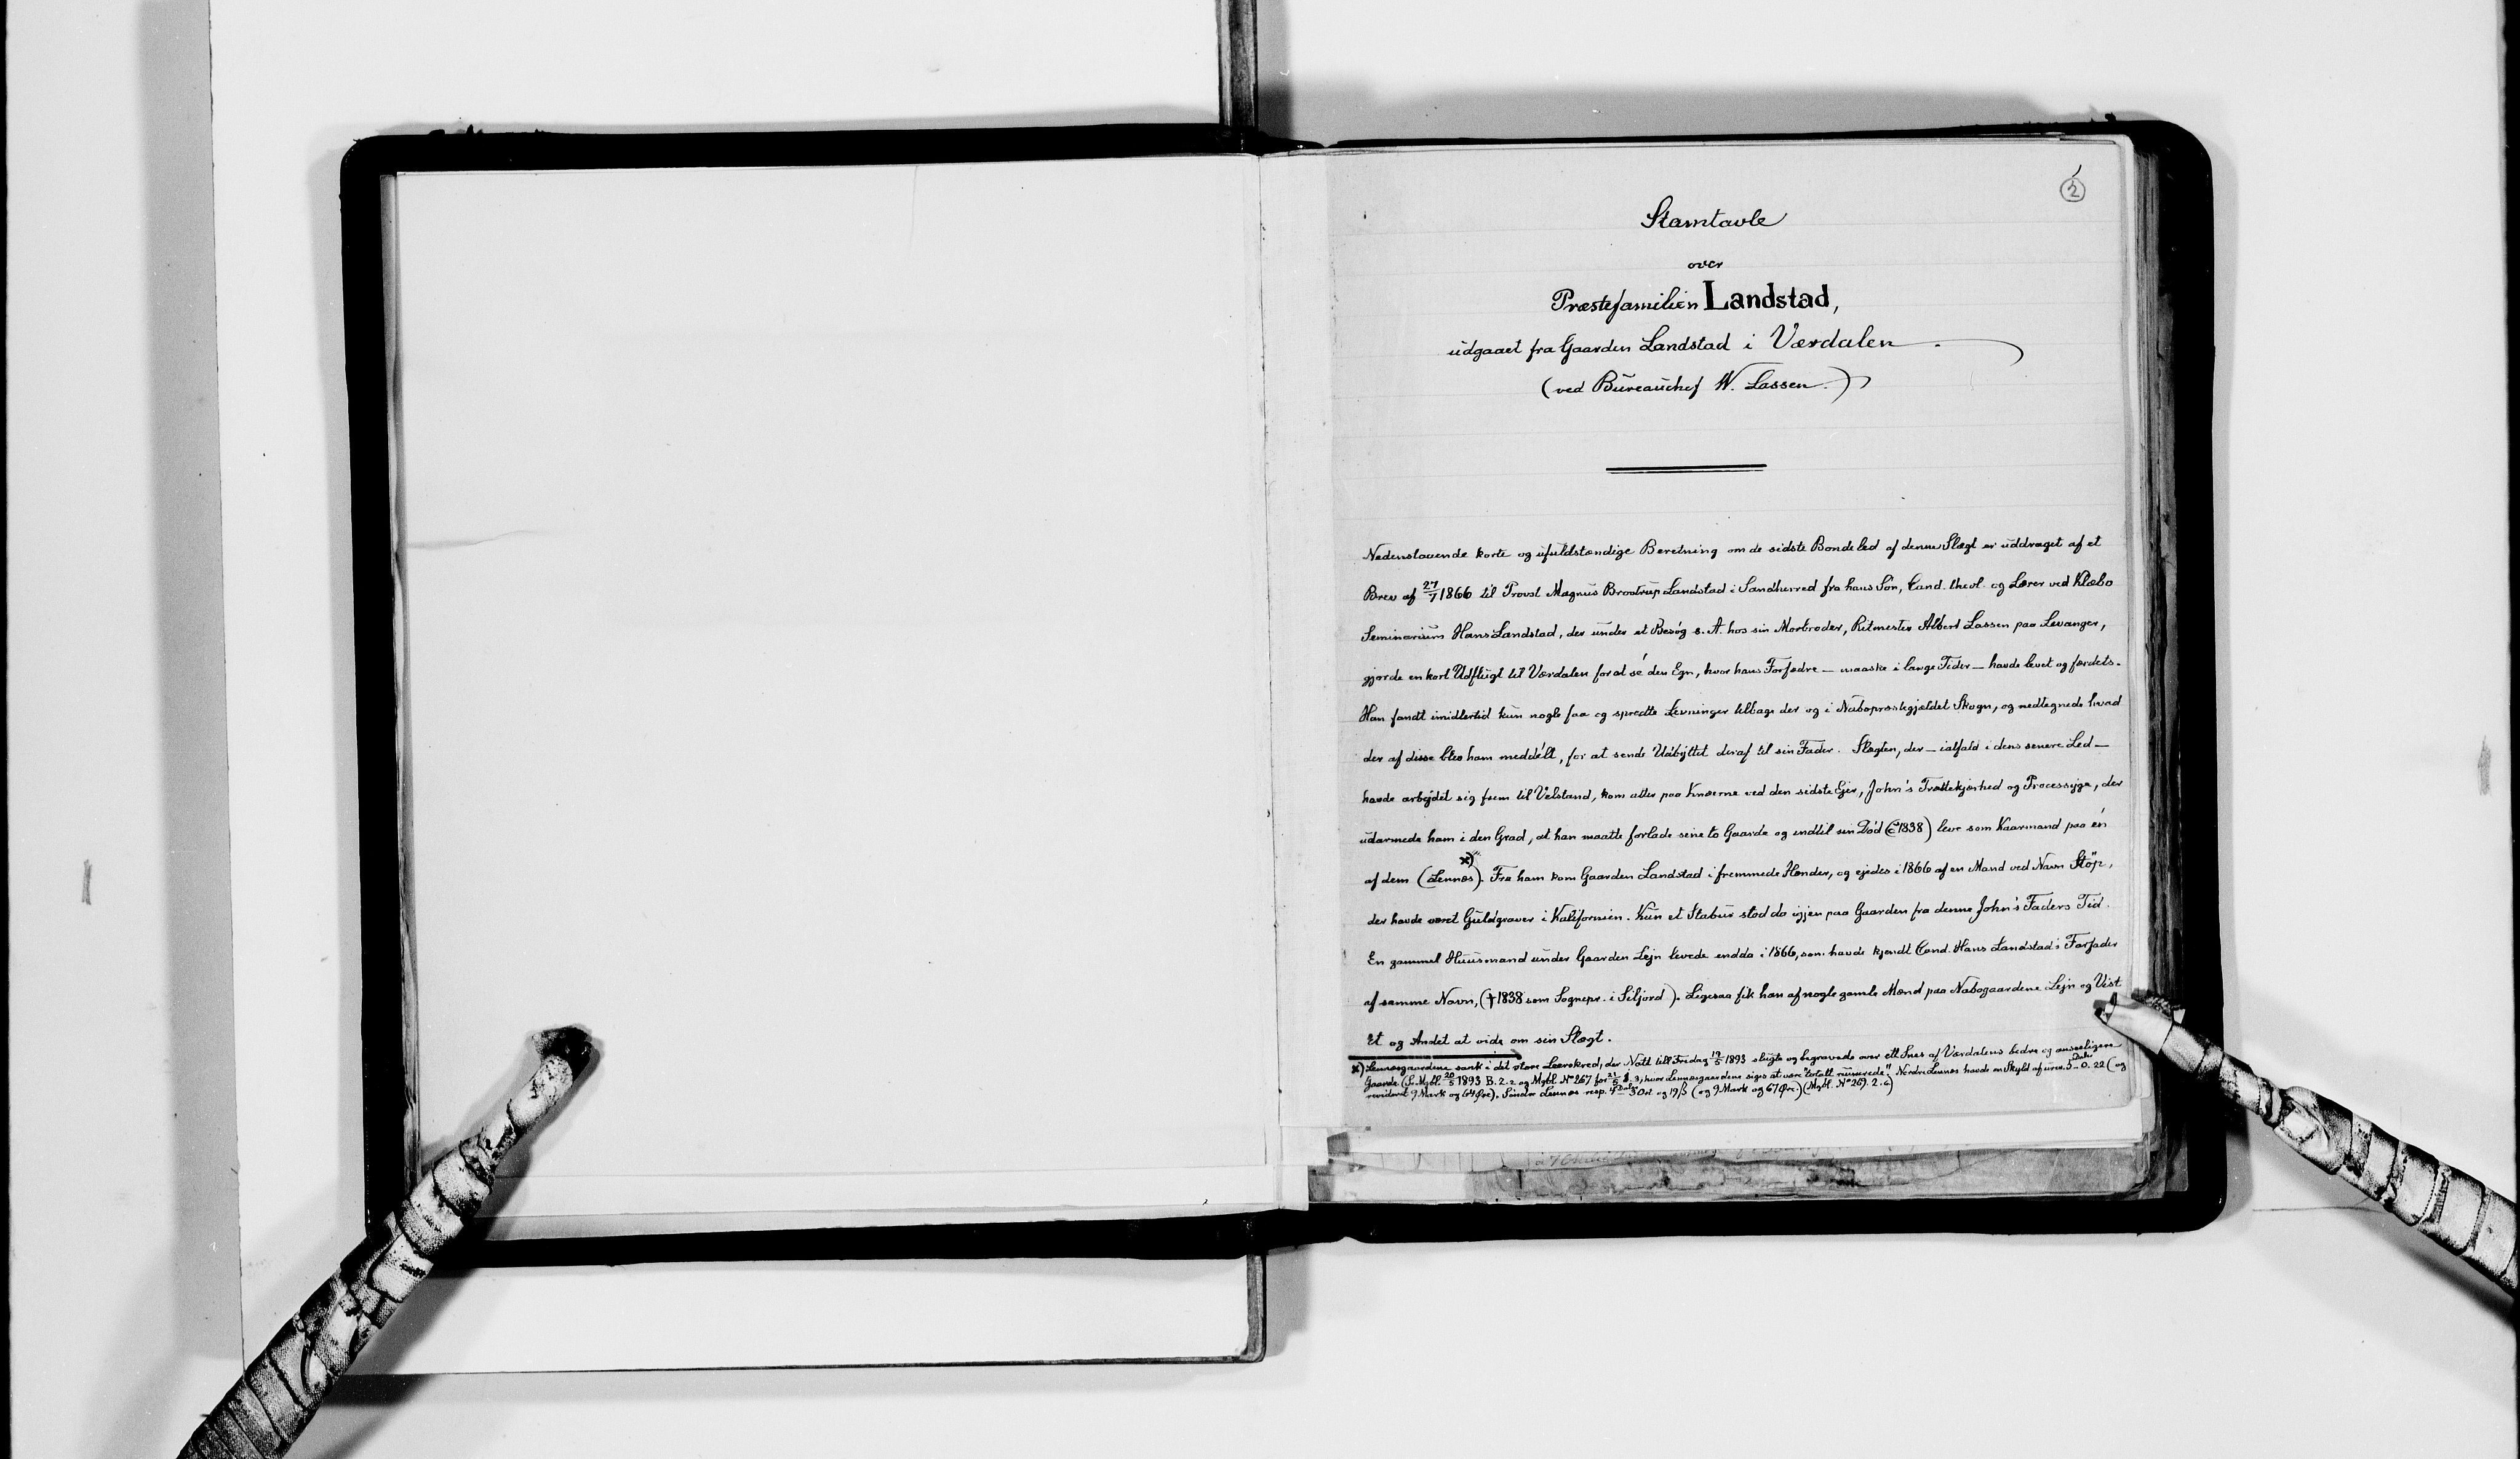 2
Stamtavle
over
Præstefamilien Landstad,
udgaaet fra Gaarden Landstad i Værdalen.
(ved Bureauchef W. Lassen.)
Nedenstaaende korte og ufuldstændige Beretning om de sidste Bondeled af denne Slægt er uddraget af et
Brev af 27/7 1866 til Provst Magnus Brostrup Landstad i Sandherred fra hans Søn, Cand. theol. og Lærer ved Klæbo
Seminarium Hans Landstad, der under et Besøg s. A. hos sin Morbroder, Ritmester Albert Lassen paa Levanger,
gjorde en kort Udflugt til Værdalen for at sé den Egn, hvor hans Forfædre — maaske i lange Tider — havde levet og færdets.
Han fandt imidlertid kun nogle faa og spredte Levninger tilbage der og i Naboprestegjældet Skogn, og nedtegnede hvad
der af disse blev ham meddélt, for at sende Udbyttet deraf til sin Fader. Slægten, der — ialfald i dens senere Led —
havde arbejdet sig frem til Velstand, kom atter paa Knæerne ved den sidste Ejer, John's Trættekjærhed og Processyge, der
udarmede ham i den Grad, at han maatte forlade sine to Gaarde og indtil sin Død (c. 1838) leve som Kaarmand paa én
af dem (Lennes) x). Fra ham kom Gaarden Landstad i fremmede Hænder, og ejedes i 1866 af en Mand ved Navn Stöp,
der havde været Guldgraver i Kalifornien. Kun et Stabur stod da igjen paa Gaarden fra denne John's Faders Tid.
En gammel Huusmand under Gaarden Lejn levede endda i 1866, som havde kjendt Cand. Hans Landstad's Farfader
af samme Navn, († 1838 som Sognepr. i Siljord). Ligesaa fik han af nogle gamle Mænd paa Nabogaardene Lejn og Vist
Et og Andet at vide om sin Slægt.
x) Lennesgaardene sank i det store Leerskred, der Natt till Fredag 19/5 1893 slugte og begravede over ett Snes af Værdalens bedre og anseeligere
Gaarde (Se Mgbl. 20/5 1893 B. 2. 2. og Mgbl. No 267 for 21/5 s. 3, hvor Lennesgaardene siges at være "totalt ruinerede". Nordre Lennes havde en Skyld af 5 Daler 0. 22 (og
revideret 9 Mark og 64 Øre). Søndre Lennes resp. 4 Daler 3 Ort og 19 ß (og 9 Mark og 67 Øre) (Mgbl. No 269. 2. c)